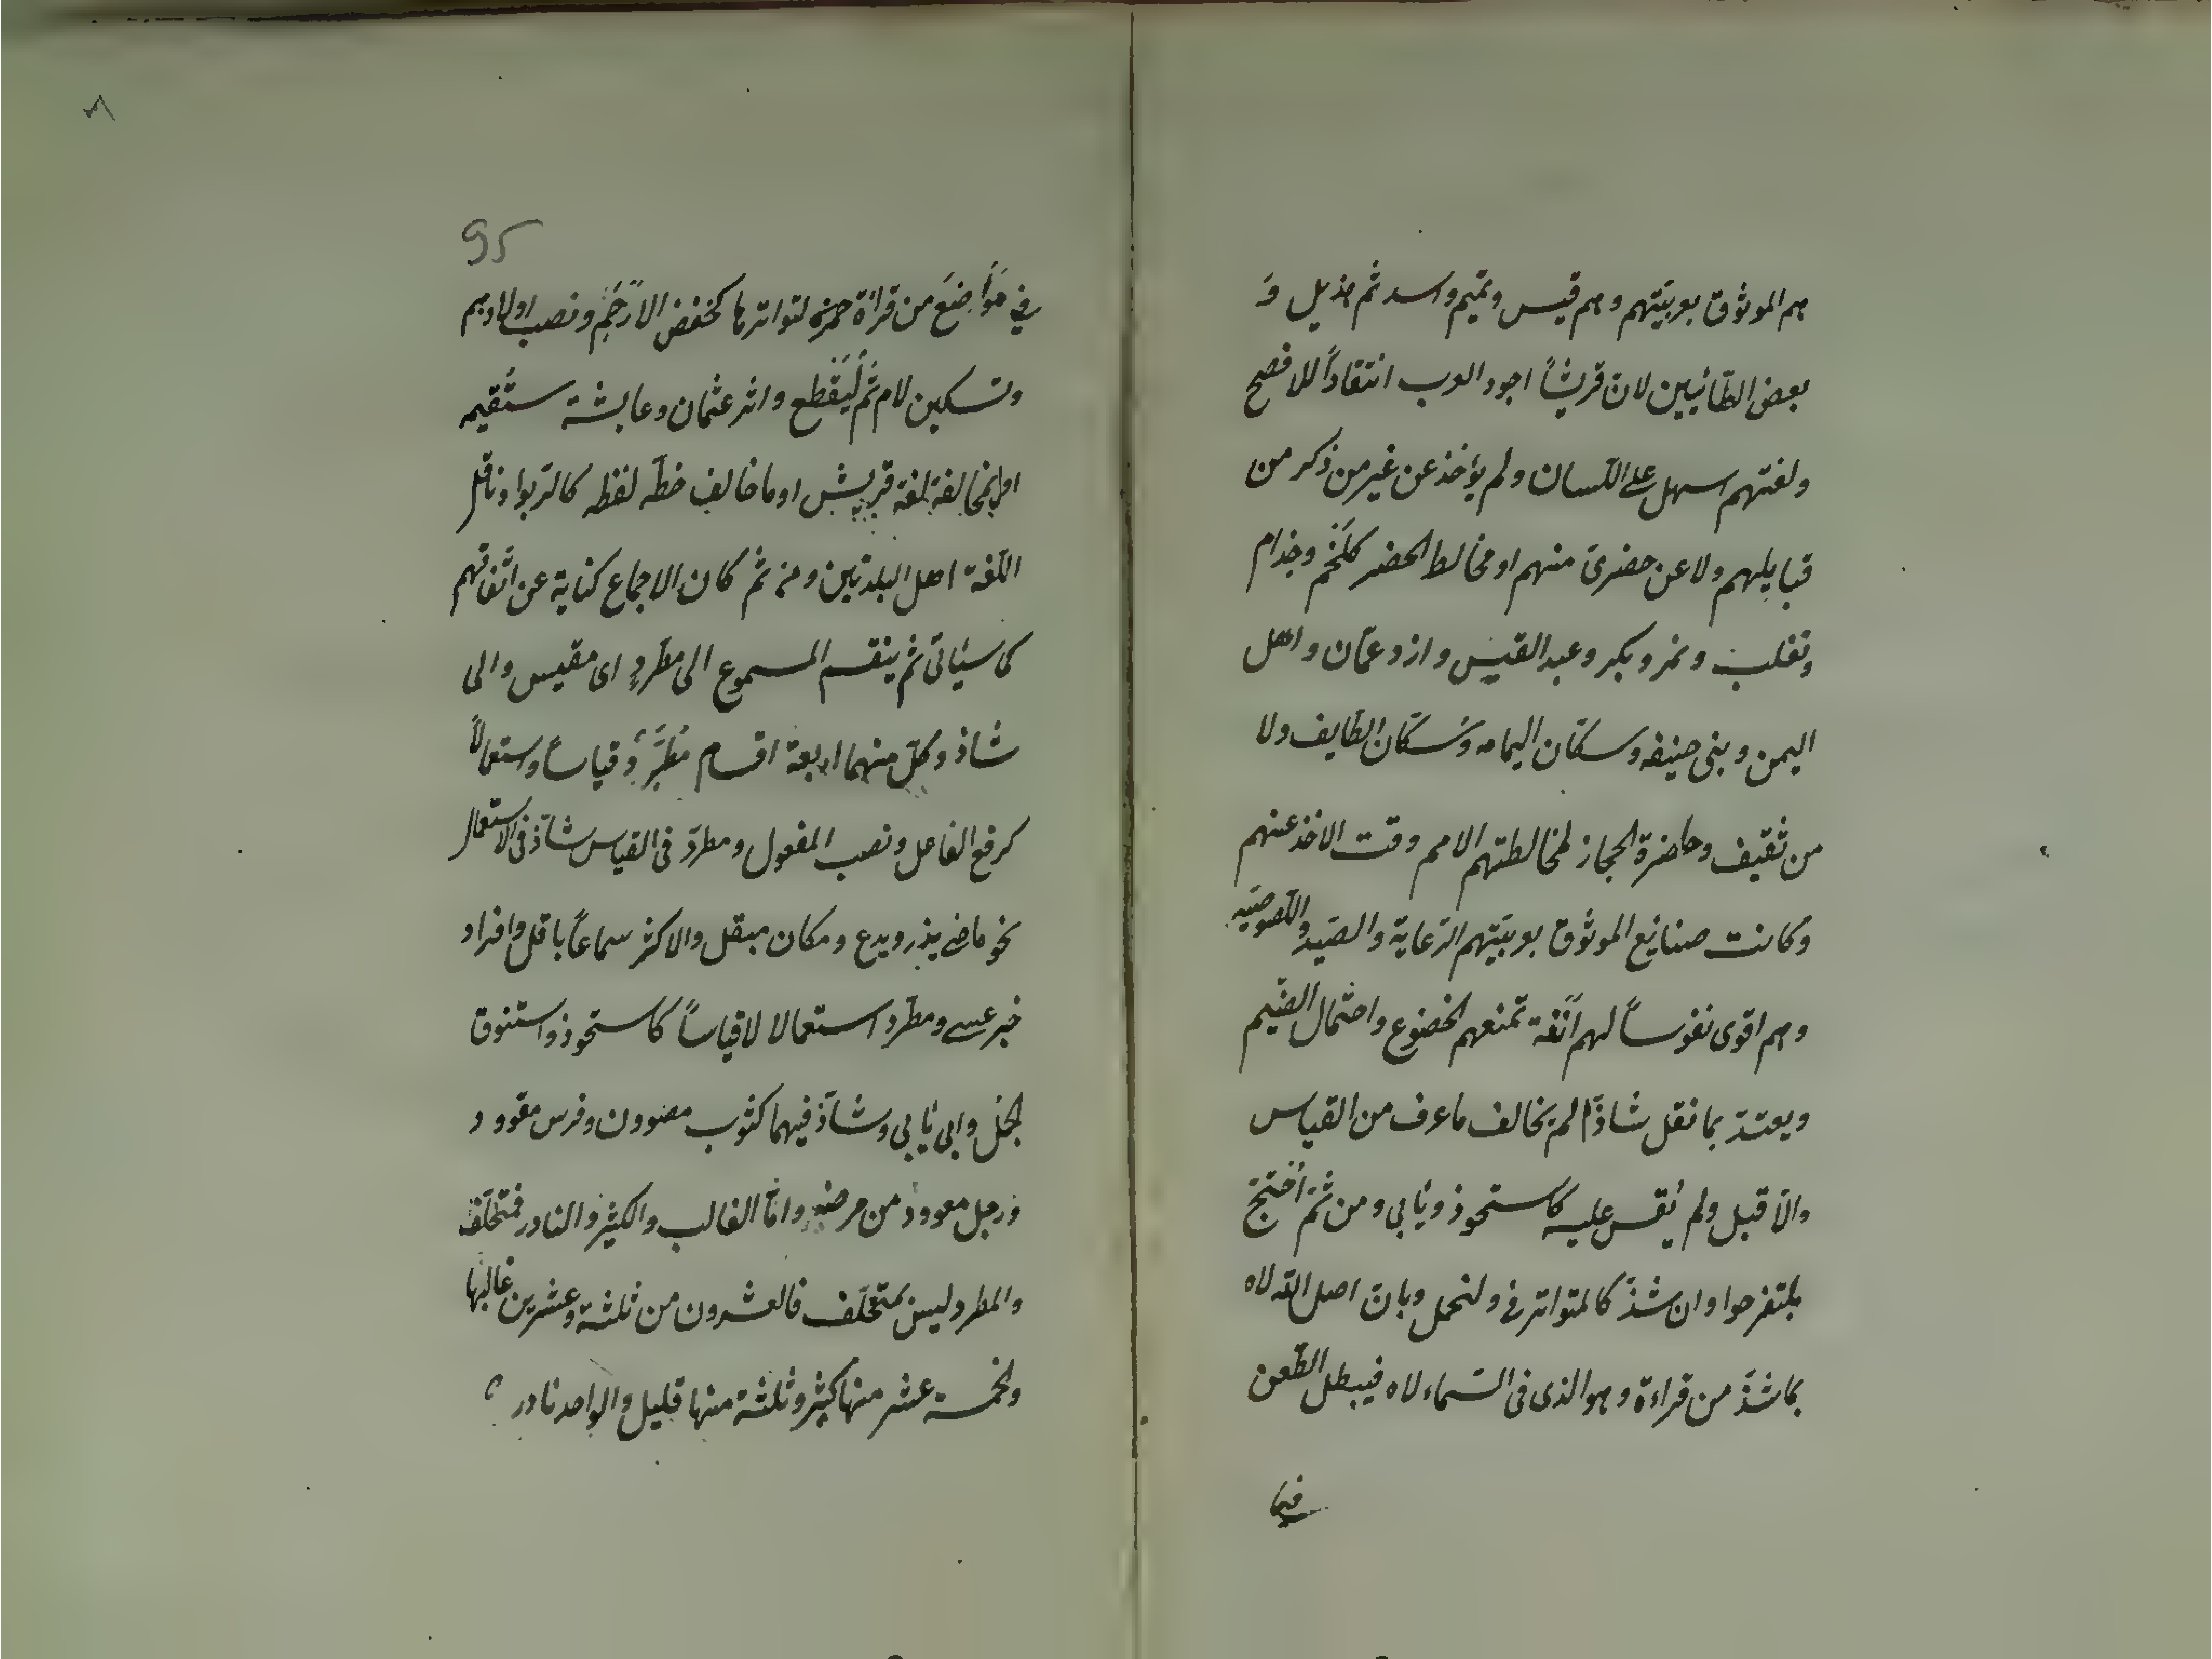 هم الموثوق بعربيّتهم وهم قيس وتميم واسد ثم هذيل وَ
بعض الطّائيين لانّ قريشاً اجود العرب انتقاداً للافصح
ولغتهم اسهل على اللّسان ولم يؤخذ عن غير من ذكر من
قبايلهم ولا عن حضرىّ منهم او مخالط الحضر كلَخْم وجذام
وتغلب ونمر وبكر وعبد القيس وازد عمّان واهل
اليمن وبنى حنيفه وسكّان اليمامه وسُكّان الطّايف ولا
من ثقيف وحاضرة الحجاز لمخالطتهم الامم وقت الاخذ عنهم
وكانت صنايع الموثوق بعربيّتهم الرّعاية والصّيد واللّصوصيّه
وهم اقوى نفوساً لهم اَنَفة تمنعهم الخضوع واحتمال الضّيم
ويعتدّ بما نقل شاذّاً لم يخالف ماعرف من القياس
والّا قبل ولم يُقس عليه كاستحوذ ويأبى ومن ثَمّ اُحتجّ
بلتفرحوا وان شذّ كالمتواتر فى ولنحمل وبانّ اصل اللّه لاه
بماشذّ من قراءة وهوالذى فى السّماء لاه فيبطل الطّعن
فى
95
فى مَوَاضِعَ من قراءة حمزه لتواترها كخفض الارْحَامِ ونصب اولادهم
وتسكين لام ثُمَّ لْيَقْطع واثر عثمان وعايشة ستُقيمه
اولمخالفة لغة قريش اوماخالف خطّه لفظه كالرّبوا وناقل
اللّغة اهل البلدتين ومن ثمّ كان الاجماع كناية عن اتّفاقهم
كماسيأتى ثم ينقسم المسموع الى مطّردٍ اى مقيس والى
شاذ وكلّ منهما اربعة اقسام مُطَّرِدٌ قياساً واستعمالاً
كرفع الفاعل ونصب المفعول ومطردّ فى القياس شاذّ فى الاستعمال
نحو ماضى يذر ويدع ومكان مبقل والاكثر سماعاً باقل وافراد
خبر عسى ومطّرد استعمالا لاقياساً كاستحوذ واستنوق
الجمل وابى يأبى وشاذّ فيهما كثوب مصوون وفرس مقوود
ورجل معوود من مرضه وامّا الغالب والكثير والنادر فمتخلّف
والمطرد ليس بمتخلّف فالعشرون من ثلثة وعشرين غالبها
والخمسة عشر منها كثير وثلثة منها قليل والواحد نادر